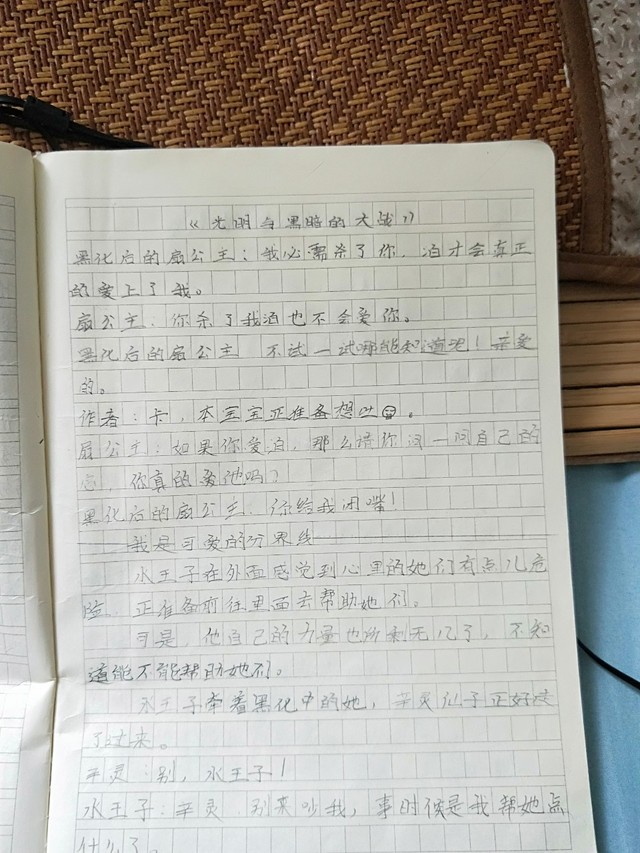 《光明与黑暗的大战》
黑化后的扇公主：我必需杀了你，泊才会真正
的爱上了我。
扇公主：你杀了我泊也不会爱你。
黑化后的扇公主 不试一试哪能知道呢！亲爱
的。
作者：卡，本宝宝正准备想吐☺。
扇公主：如果你爱泊，那么请你问一问自己的
心，你真的爱他吗？
黑化后的扇公主：你给我闭嘴！
我是可爱的分界线
水王子在外面感觉到心里的她们有点儿危
险，正准备前往里面去帮助她们。
可是，他自己的力量也所剩无几了，不知
道能不能帮助她们。
水王子牵着黑化中的她，辛灵仙子正好走
了过来。
辛灵：别，水王子！
水王子：辛灵，别来吵我，事时候是我帮她点
什么了。